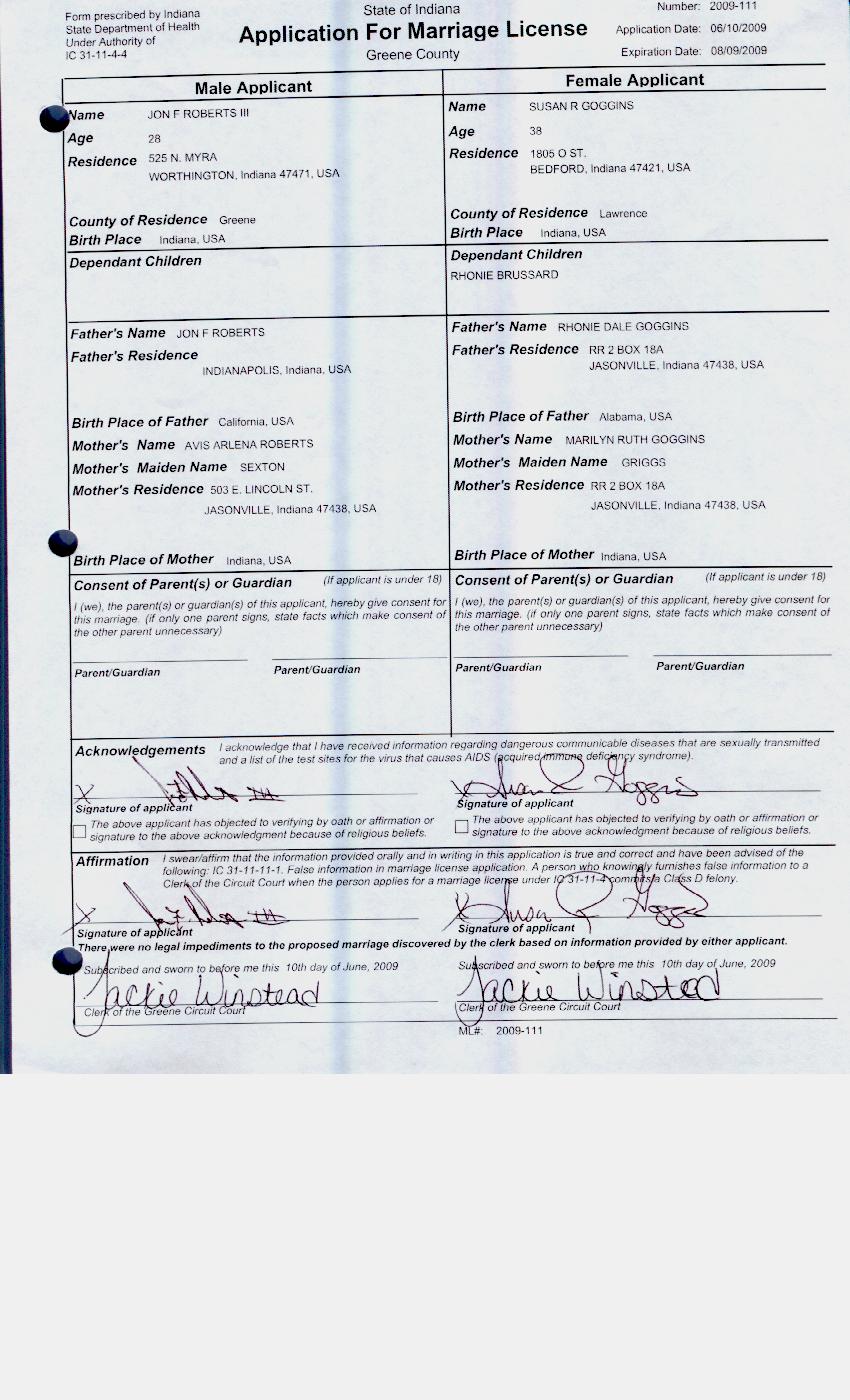 Form prescribed by Indiana
State Department of Health
Under Authority of
IC 31-11-4-4
State of Indiana
Application For Marriage License
Greene County
Number: 2009-111
Application Date: 06/10/2009
Expiration Date: 08/09/2009
Male Applicant
Name JON F ROBERTS III
Age 28
Residence 525 N. MYRA
WORTHINGTON, Indiana 47471, USA
County of Residence Greene
Birth Place Indiana, USA
Dependant Children
Father's Name JON F ROBERTS
Father's Residence
INDIANAPOLIS, Indiana, USA
Birth Place of Father California, USA
Mother's Name AVIS ARLENA ROBERTS
Mother's Maiden Name SEXTON
Mother's Residence 503 E. LINCOLN ST.
JASONVILLE, Indiana 47438, USA
Birth Place of Mother Indiana, USA
Consent of Parent(s) or Guardian (If applicant is under 18)
I (we), the parent(s) or guardian(s) of this applicant, hereby give consent for
this marriage. (if only one parent signs, state facts which make consent of
the other parent unnecessary)
Parent/Guardian Parent/Guardian
Female Applicant
Name SUSAN R GOGGINS
Age 38
Residence 1805 O ST.
BEDFORD, Indiana 47421, USA
County of Residence Lawrence
Birth Place Indiana, USA
Dependant Children
RHONIE BRUSSARD
Father's Name RHONIE DALE GOGGINS
Father's Residence RR 2 BOX 18A
JASONVILLE, Indiana 47438, USA
Birth Place of Father Alabama, USA
Mother's Name MARILYN RUTH GOGGINS
Mother's Maiden Name GRIGGS
Mother's Residence RR 2 BOX 18A
JASONVILLE, Indiana 47438, USA
Birth Place of Mother Indiana, USA
Consent of Parent(s) or Guardian (If applicant is under 18)
I (we), the parent(s) or guardian(s) of this applicant, hereby give consent for
this marriage. (if only one parent signs, state facts which make consent of
the other parent unnecessary)
Parent/Guardian Parent/Guardian
Acknowledgements I acknowledge that I have received information regarding dangerous communicable diseases that are sexually transmitted
and a list of the test sites for the virus that causes AIDS (acquired immune deficiency syndrome).
X III
Signature of applicant
The above applicant has objected to verifying by oath or affirmation or
signature to the above acknowledgment because of religious beliefs.
X Susan R Goggins
Signature of applicant
The above applicant has objected to verifying by oath or affirmation or
signature to the above acknowledgment because of religious beliefs.
Affirmation I swear/affirm that the information provided orally and in writing in this application is true and correct and have been advised of the
following: IC 31-11-11-1. False information in marriage license application. A person who knowingly furnishes false information to a
Clerk of the Circuit Court when the person applies for a marriage license under IC 31-11-4 commits a Class D felony.
X III
Signature of applicant
X Susan R Goggins
Signature of applicant
There were no legal impediments to the proposed marriage discovered by the clerk based on information provided by either applicant.
Subscribed and sworn to before me this 10th day of June, 2009
Jackie Winstead
Clerk of the Greene Circuit Court
Subscribed and sworn to before me this 10th day of June, 2009
Jackie Winstead
Clerk of the Greene Circuit Court
ML#: 2009-111